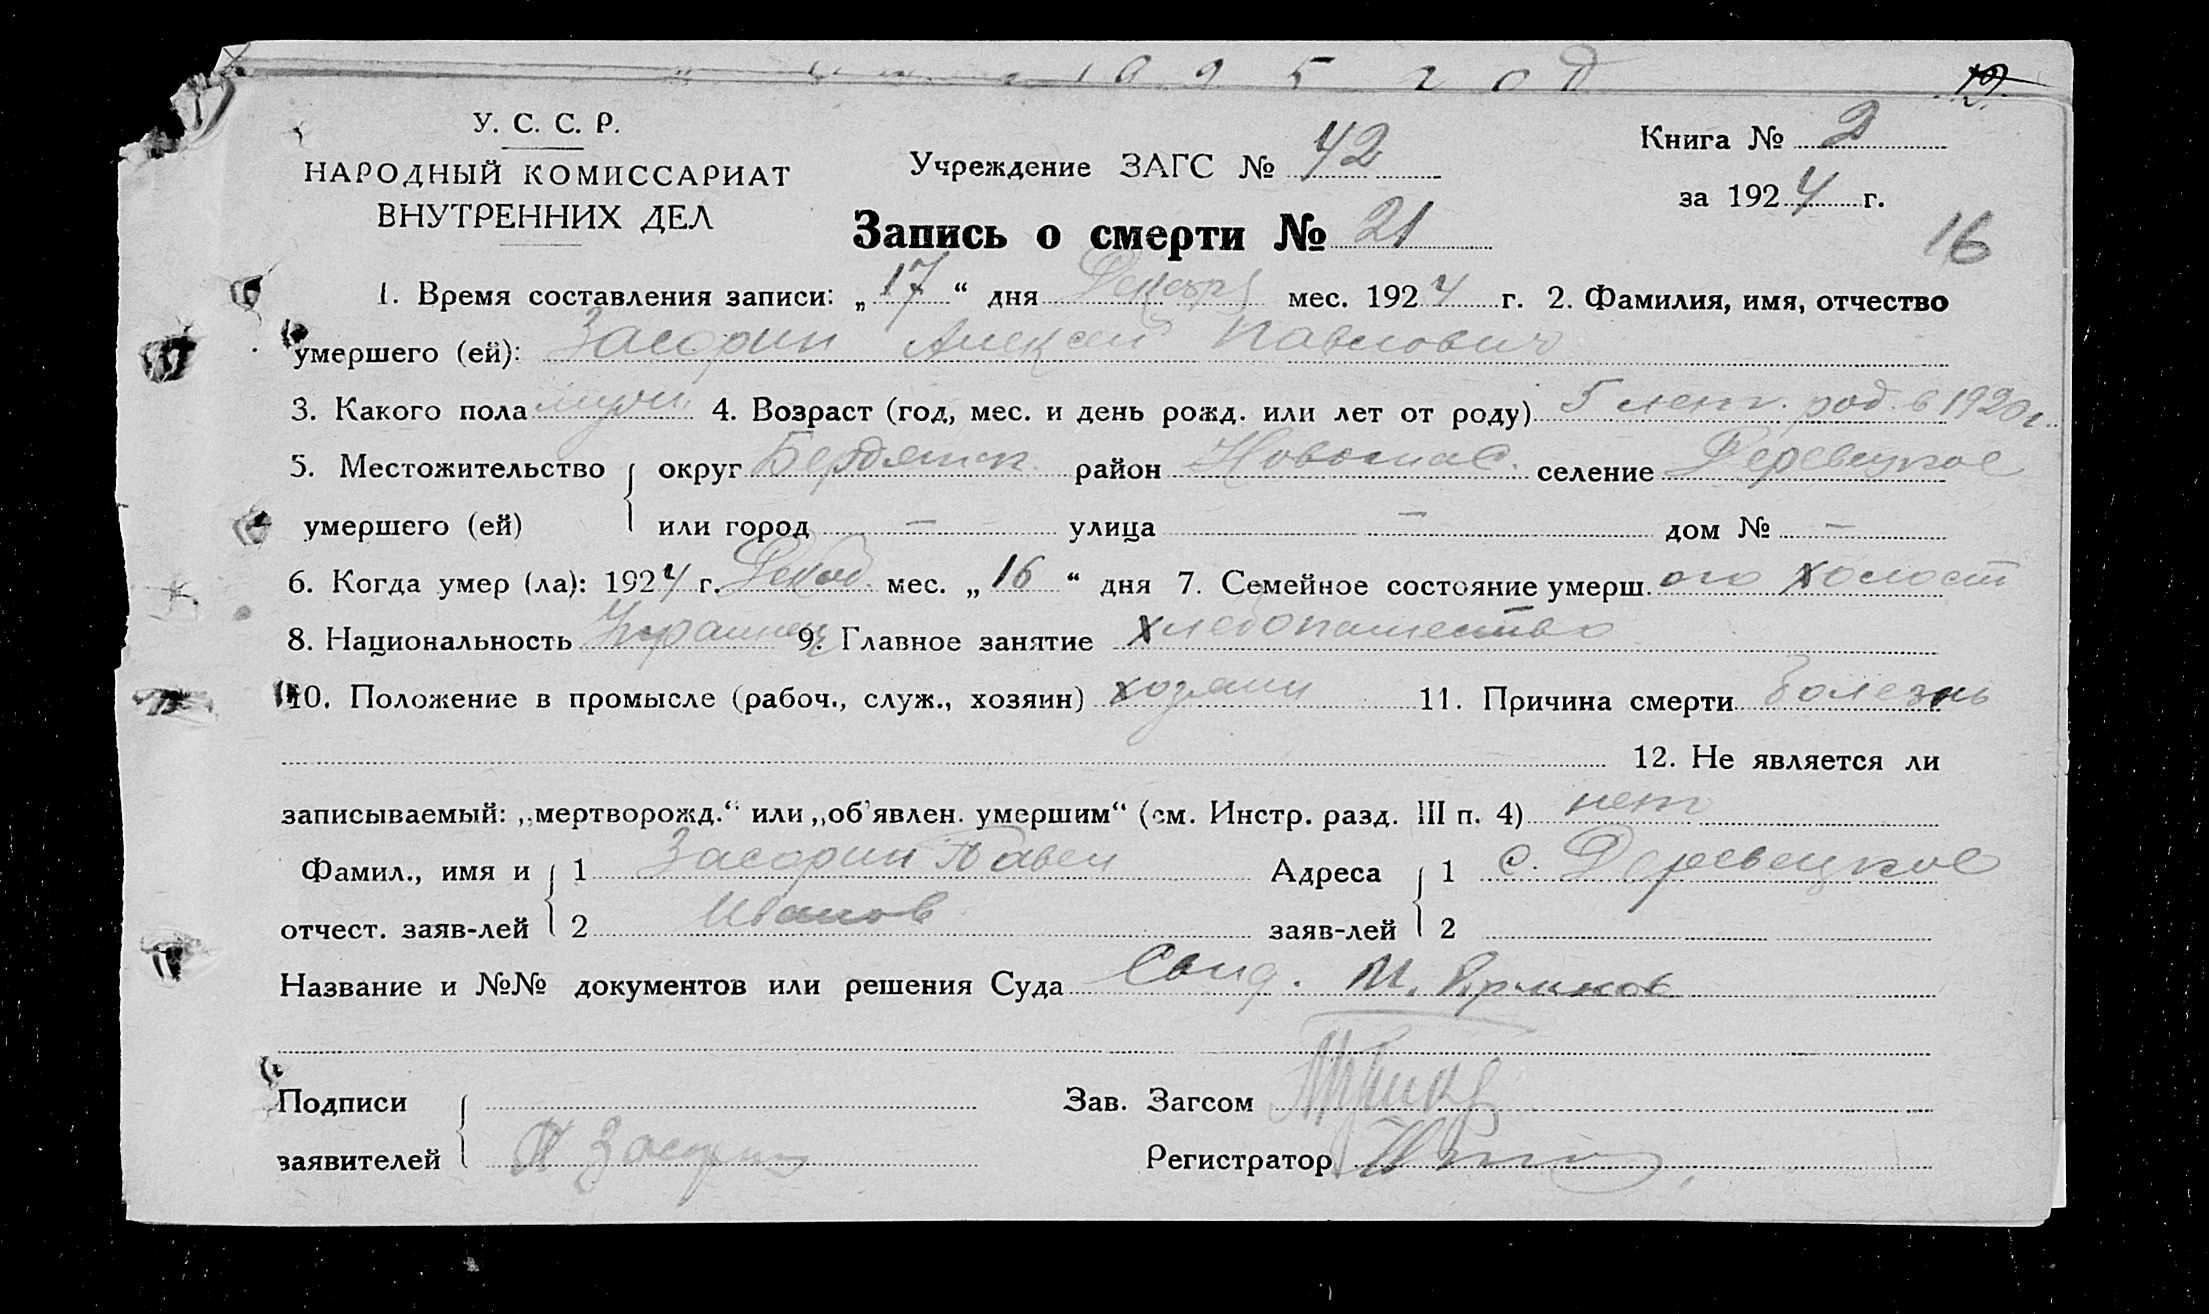 1925 год
У. С. С. Р.
НАРОДНЫЙ КОМИССАРИАТ
ВНУТРЕННИХ ДЕЛ
Учреждение ЗАГС № 42
Книга № 2
за 1924 г.
Запись о смерти № 21
16
1. Время составления записи: „17“ дня Декабря мес. 1924 г. 2. Фамилия, имя, отчество
умершего (ей): Засорин Алексей Павлович
3. Какого пола муж. 4. Возраст (год, мес. и день рожд. или лет от роду) 5 лет. род. в 1920 г.
5. Местожительство округ Бердянск. район Новоспас. селение Деревецкое
умершего (ей) или город — улица — дом № —
6. Когда умер (ла): 1924 г. Декаб. мес. „16“ дня 7. Семейное состояние умерш. ого холост
8. Национальность Украинец 9. Главное занятие хлебопашество
10. Положение в промысле (рабоч., служ., хозяин) хозяин 11. Причина смерти болезнь
12. Не является ли
записываемый: „мертворожд.“ или „об'явлен. умершим“ (см. Инстр. разд. III п. 4) нет
Фамил., имя и 1 Засорин Павел Адреса 1 с. Деревецкое
отчест. заяв-лей 2 Иванов заяв-лей 2
Название и №№ документов или решения Суда М.
Подписи Зав. Загсом
заявителей П Засорин Регистратор